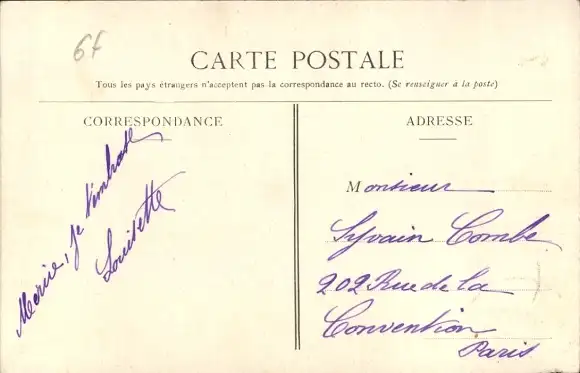 6f
CARTE POSTALE
Tous les pays étrangers n'acceptent pas la correspondance au recto. (Se renseigner à la poste)
CORRESPONDANCE
je t'embrasse
Louisette
ADRESSE
Monsieur
Sylvain Combe
202 Rue de la
Convention
Paris